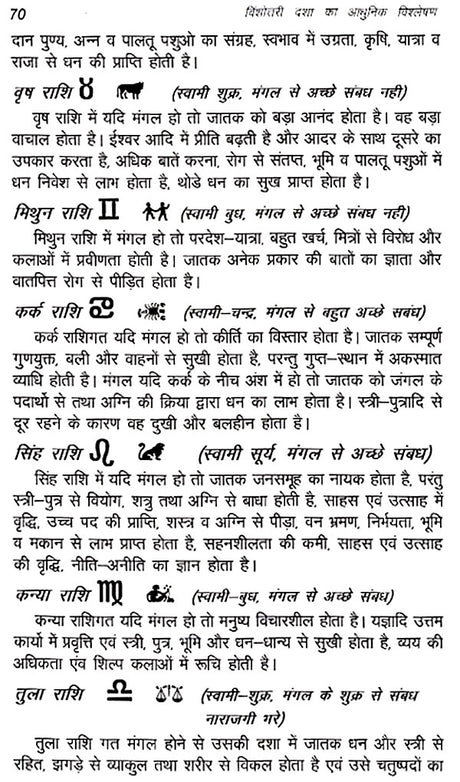 70 विंशोतरी दशा का आधुनिक विश्लेषण
दान पुण्य, अन्न व पालतू पशुओ का संग्रह, स्वभाव में उग्रता, कृषि, यात्रा व
राजा से धन की प्राप्ति होती है।
वृष राशि ♉ (स्वामी शुक्र, मंगल से अच्छे संबध नही)
वृष राशि में यदि मंगल हो तो जातक को बड़ा आनंद होता है। वह बड़ा
वाचाल होता है। ईश्वर आदि में प्रीति बढ़ती है और आदर के साथ दूसरे का
उपकार करता है, अधिक बातें करना, रोग से संतप्त, भूमि व पालतू पशुओं में
धन निवेश से लाभ होता है, थोडे धन का सुख प्राप्त होता है।
मिथुन राशि ♊ (स्वामी बुध, मंगल से अच्छे संबध नही)
मिथुन राशि में मंगल हो तो परदेश–यात्रा, बहुत खर्च, मित्रों से विरोध और
कलाओं में प्रवीणता होती है। जातक अनेक प्रकार की बातों का ज्ञाता और
वातपित्त रोग से पीड़ित होता है।
कर्क राशि ♋ (स्वामी–चन्द्र, मंगल से बहुत अच्छे सबंध)
कर्क राशिगत यदि मंगल हो तो कीर्ति का विस्तार होता है। जातक सम्पूर्ण
गुणयुक्त, बली और वाहनों से सुखी होता है, परन्तु गुप्त–स्थान में अकस्मात
व्याधि होती है। मंगल यदि कर्क के नीच अंश में हो तो जातक को जंगल के
पदार्थो से तथा अग्नि की क्रिया द्वारा धन का लाभ होता है। स्त्री–पुत्रादि से
दूर रहने के कारण वह दुखी और बलहीन होता है।
सिंह राशि ♌ (स्वामी सूर्य, मंगल से अच्छे संबध)
सिंह राशि में यदि मंगल हो तो जातक जनसमूह का नायक होता है, परंतु
स्त्री–पुत्र से वियोग, शत्रु तथा अग्नि से बाधा होती है, साहस एवं उत्साह में
वृद्धि, उच्च पद की प्राप्ति, शस्त्र व अग्नि से पीड़ा, वन भ्रमण, निर्भयता, भूमि
व मकान से लाभ प्राप्त होता है, सहनशीलता की कमी, साहस एवं उत्साह
की वृद्धि, नीति–अनीति का ज्ञान होता है।
कन्या राशि ♍ (स्वामी–बुध, मंगल से अच्छे संबध)
कन्या राशिगत यदि मंगल हो तो मनुष्य विचारशील होता है। यज्ञादि उत्तम
कार्यो में प्रवृत्ति एवं स्त्री, पुत्र, भूमि और धन–धान्य से सुखी होता है, व्यय की
अधिकता एंव शिल्प कलाओं में रूचि होती है।
तुला राशि ♎ (स्वामी–शुक्र, मंगल के शुक्र से संबध
नाराजगी भरे)
तुला राशि गत मंगल होने से उसकी दशा में जातक धन और स्त्री से
रहित, झगड़े से व्याकुल तथा शरीर से विकल होता है एवं उसे चतुष्पदों का